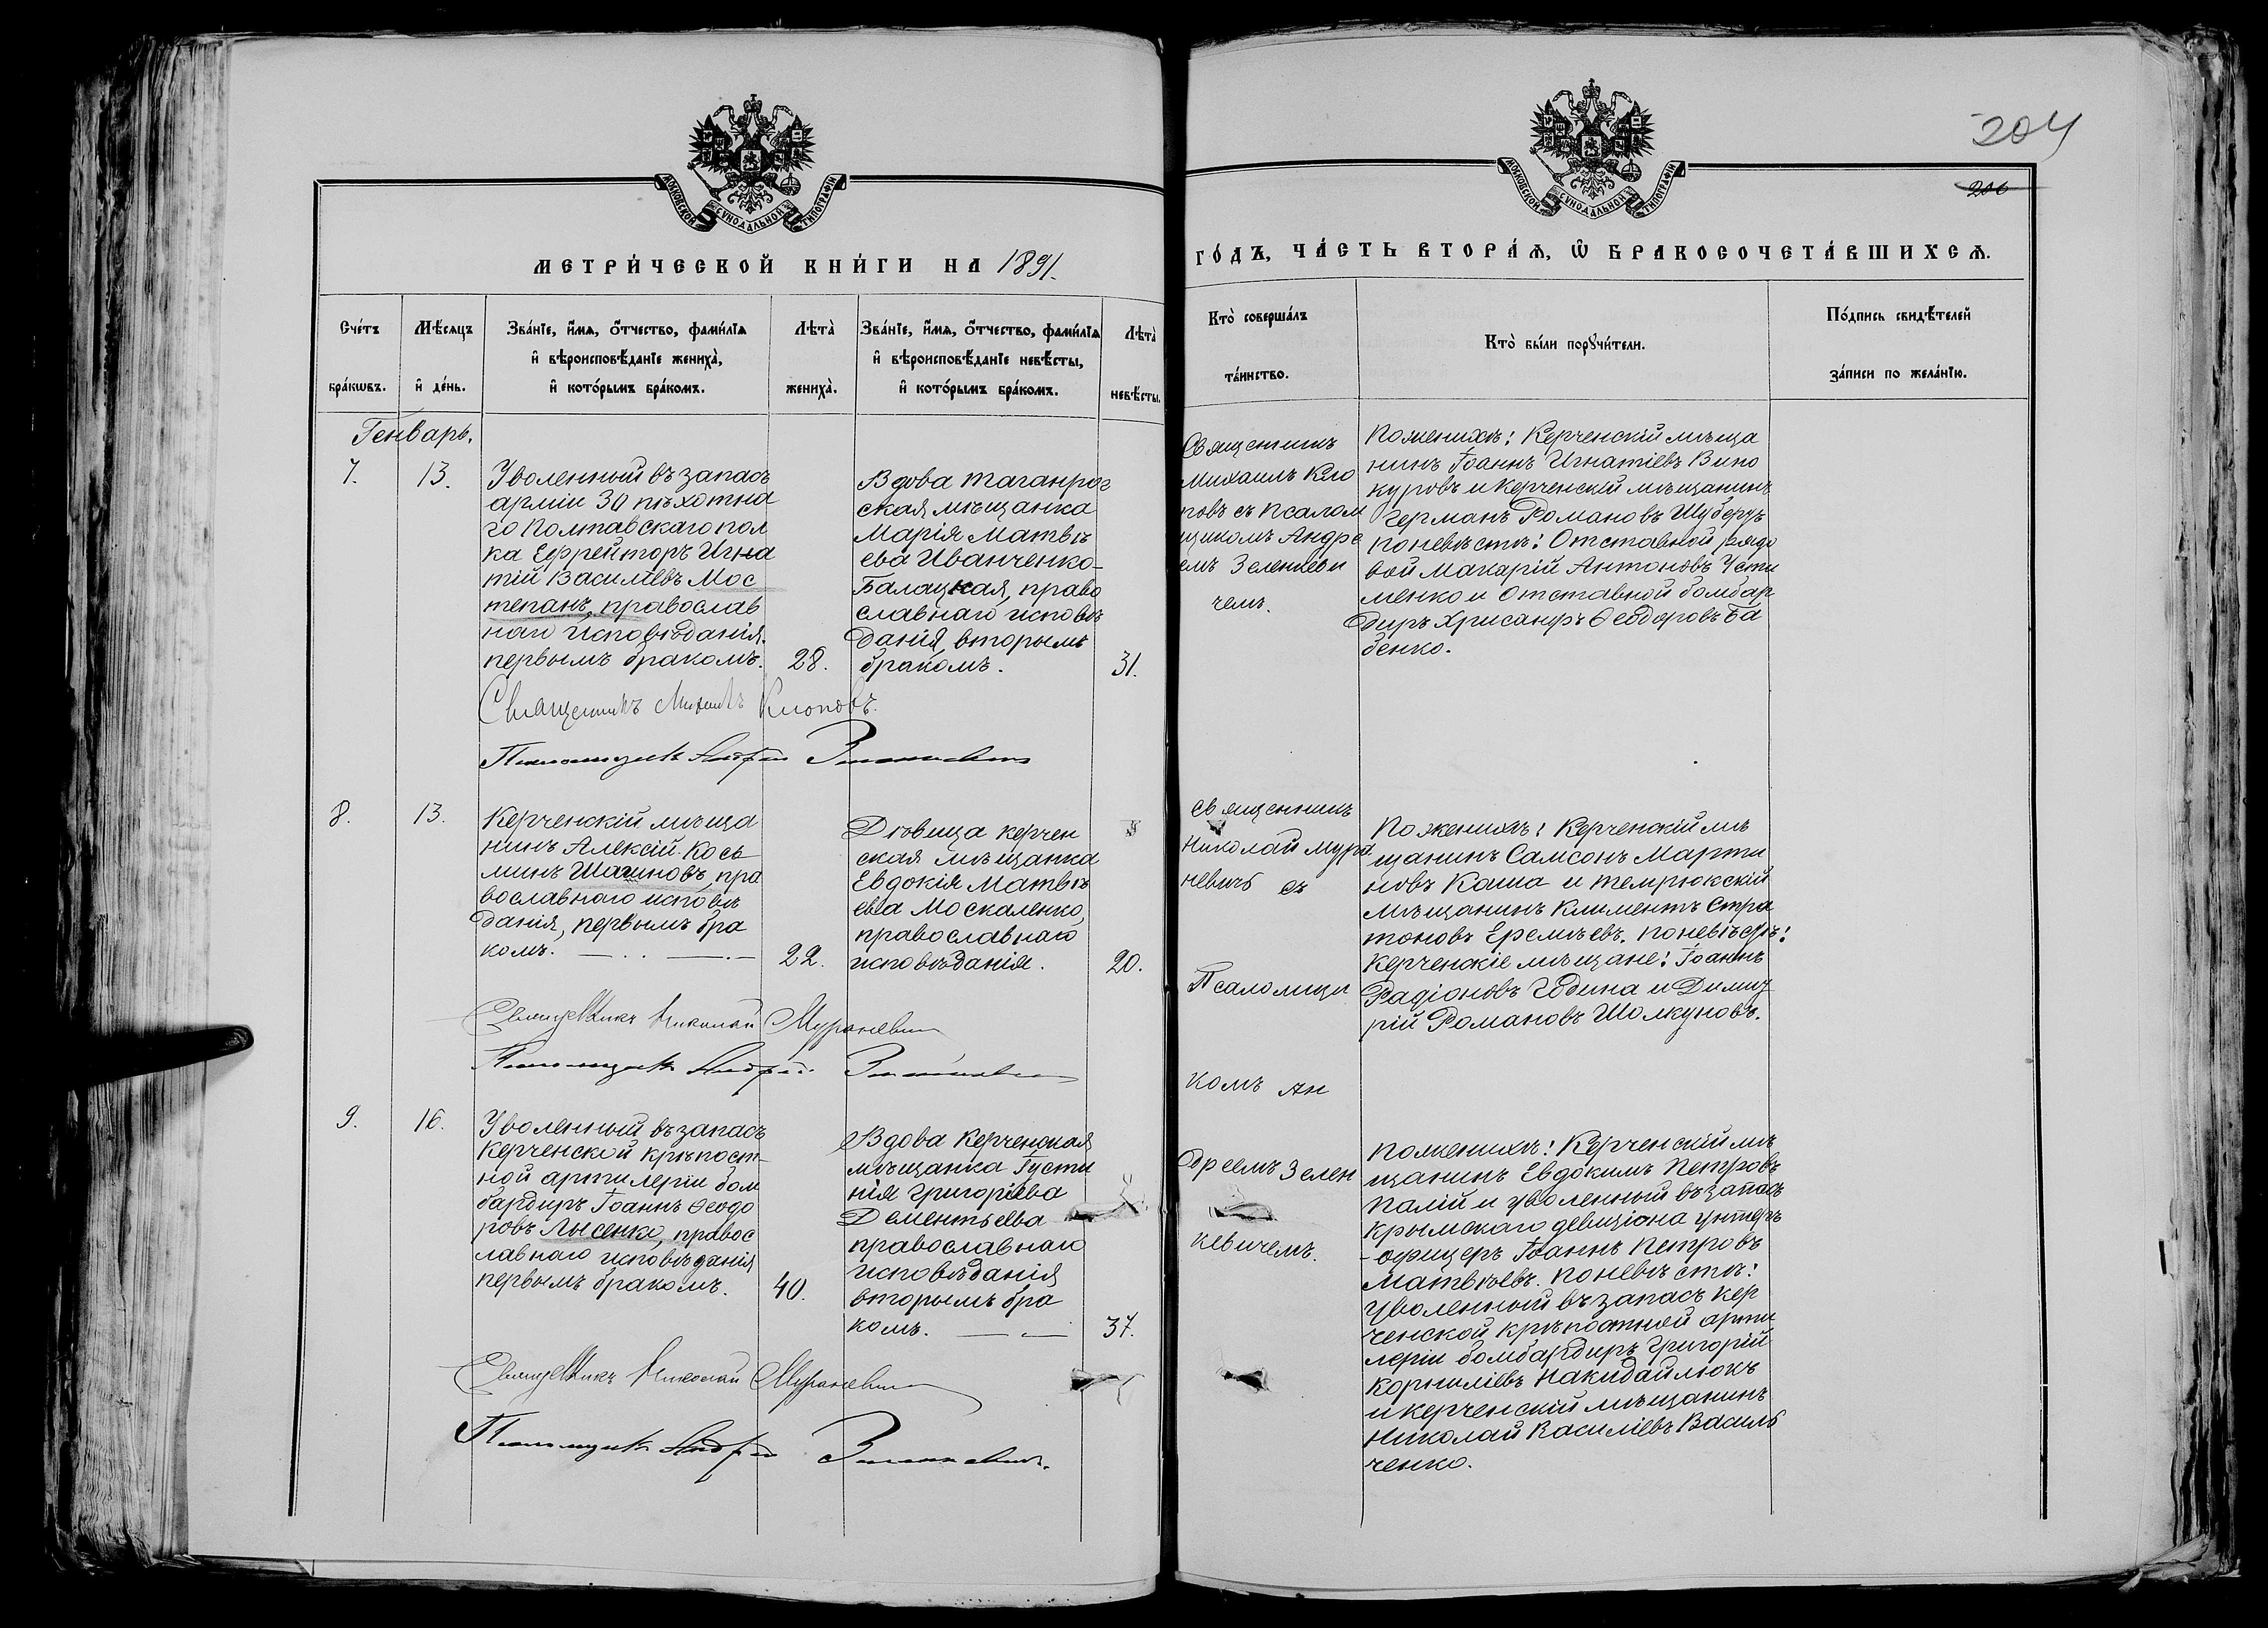 204
206
МОСКОВСКОЙ СУНОДАЛЬНОЙ ТИПОГРАФІИ
МОСКОВСКОЙ СУНОДАЛЬНОЙ ТИПОГРАФІИ
МЕТРИ́ЧЕСКОЙ КНИ́ГИ НА 1891.
ГО́ДЪ, ЧА́СТЬ ВТОРА́Я, Ѿ БРАКОСОЧЕТА́ВШИХСЯ.
Сче́тъ бра́кѡвъ.
Мѣ́сяцъ и҆ де́нь.
Зва́нїе, и҆́мя, о҆́тчество, фами́лїя
и҆ вѣроисповѣ́данїе жениха̀,
и҆ кото́рымъ бра́комъ.
Лѣта̀ жениха̀.
Зва́нїе, и҆́мя, о҆́тчество, фами́лїя
и҆ вѣроисповѣ́данїе невѣ́сты,
и҆ кото́рымъ бра́комъ.
Лѣта̀ невѣ́сты.
Кто̀ соверша́лъ
та́инство.
Кто̀ бы́ли порꙋчи́тели.
По́дпись свидѣ́телей
за́писи по жела́нїю.
Генварь.
7.
13.
Уволенный въ запасъ
арміи 30 пѣхотна
го Полтавскаго пол
ка Ефрейторъ Игна
тій Василіевъ Мос
тепанъ, православ
наго исповѣданія.
первымъ бракомъ.
28.
Вдова таганрог
ская мѣщанка
Марія Матвѣ
ева Иванченко-
Балацкая, право
славнаго исповѣ
данія, вторымъ
бракомъ.
31.
Священникъ
Михаилъ Кло
повъ съ псалом
щикомъ Андре
емъ Зеленкеви
чемъ.
Поженихѣ: Керченскій мѣща
нинъ Іоаннъ Игнатіевъ Вино
куровъ и керченскій мѣщанинъ
Германъ Романовъ Шуберъ
поневѣстѣ: Отставной рядо
вой Макарій Антоновъ Усти
менко и отставной бомбар
диръ Хрисанфъ Ѳеодоровъ Ба
бенко.
Священникъ Михаилъ Клоповъ.
Псаломщикъ Андрей Зеленкевичъ
8.
13.
Керченскій мѣща
нинъ Алексій Кось
минъ Шагиновъ, пра
вославнаго исповѣ
данія, первымъ бра
комъ.
22.
Дѣвица керчен
ская мѣщанка
Евдокія Матвѣ
ева Москаленко,
православнаго
исповѣданія.
20.
священникъ
Николай Мура
невичъ съ
Псаломщи
комъ Ан
дреемъ Зелен
кевичемъ.
Поженихѣ: Керченскій мѣ
щанинъ Самсонъ Марти
новъ Каша и темрюкскій
мѣщанинъ Климентъ Стра
тоновъ Еремѣевъ. поневѣстѣ:
Керченскіе мѣщане: Іоаннъ
Радіоновъ Година и Димит
рій Романовъ Шолкуновъ.
Священникъ Николай Мураневичъ
Псаломщикъ Андрей Зеленкевичъ
9.
16.
Уволенный въ запасъ
Керченской крѣпост-
ной артилеріи бом
бардиръ Іоаннъ Ѳеодо
ровъ Лысенко, правос
лавнаго исповѣданія
первымъ бракомъ.
40.
Вдова Керченская
мѣщанка Густи
нія Григоріева
Дементьева
православнаго
исповѣданія
вторымъ бра
комъ.
37.
поженихѣ: Керченскій мѣ
щанинъ Евдокимъ Петровъ
Палій и уволенный въ запасъ
Крымскаго дивизіона унтеръ
-офицеръ Іоаннъ Петровъ
Матвѣевъ. поневѣстѣ:
уволенный въ запасъ кер
ченской крѣпостной арти
леріи бомбардиръ Григорій
Корниліевъ Накидайлюкъ
и керченскій мѣщанинъ
Николай Василіевъ Василь
ченко.
Священникъ Николай Мураневичъ
Псаломщикъ Андрей Зеленкевичъ.